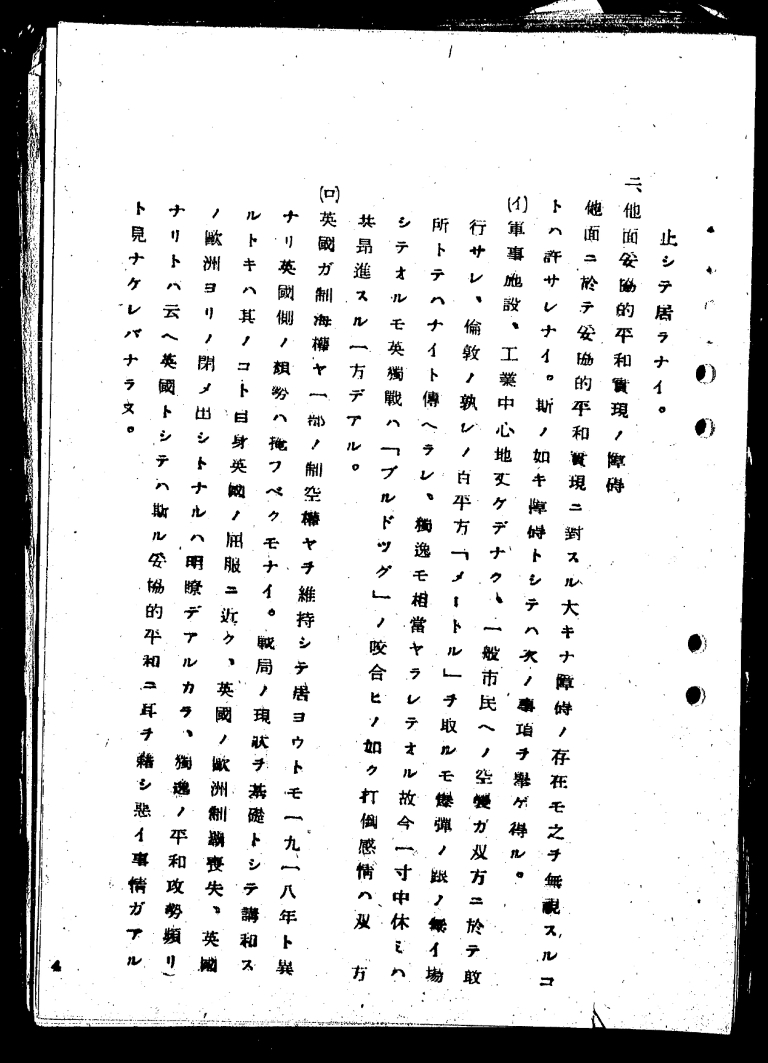 止シテ居ラナイ。
二、他面妥協的平和實現ノ障碍
他面ニ於テ妥協的平和實現ニ對スル大キナ障碍ノ存在モ之ヲ無視スルコ
トハ許サレナイ。斯ノ如キ障碍トシテハ次ノ事項ヲ擧ゲ得ル。
(イ)軍事施設、工業中心地丈ケデナク、一般市民ヘノ空襲ガ双方ニ於テ敢
行サレ、倫敦ノ孰レノ百平方「メートル」ヲ取ルモ爆彈ノ跟ノ無イ場
所トテハナイト傳ヘラレ。獨逸モ相當ヤラレテオル故今一寸中休ミハ
シテオルモ英獨戰ハ「ブルドツグ」ノ咬合ヒノ如ク打倒感情ハ双方
共昂進スル一方デアル。
(ロ)英國ガ制海權ヤ一部ノ制空權ヤヲ維持シテ居ヨウトモ一九一八年ト異
ナリ英國側ノ頽勢ハ掩フベクモナイ。戰局ノ現狀ヲ基礎トシテ講和ス
ルトキハ其ノコト自身英國ノ屈服ニ近ク、英國ノ歐洲制覇喪失、英國
ノ歐洲ヨリノ閉メ出シトナルハ明瞭デアルカラ、獨逸ノ平和攻勢頻リ
ナリトハ云ヘ英國トシテハ斯ル妥協的平和ニ耳ヲ藉シ惡イ事情ガアル
ト見ナケレバナラヌ。
4